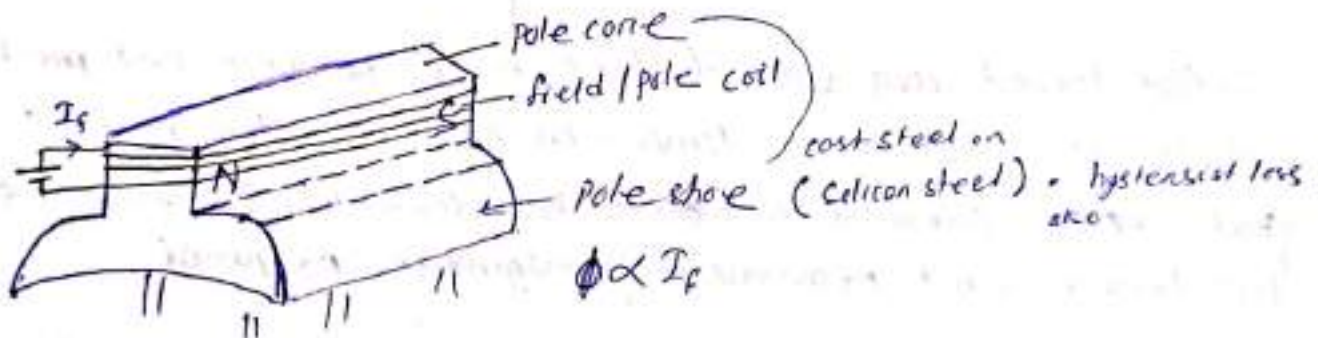 pole core
I_f
field / pole coil
N
cast steel or
pole shoe (Celicon steel) . hysterisist loss
ϕ ∝ I_f